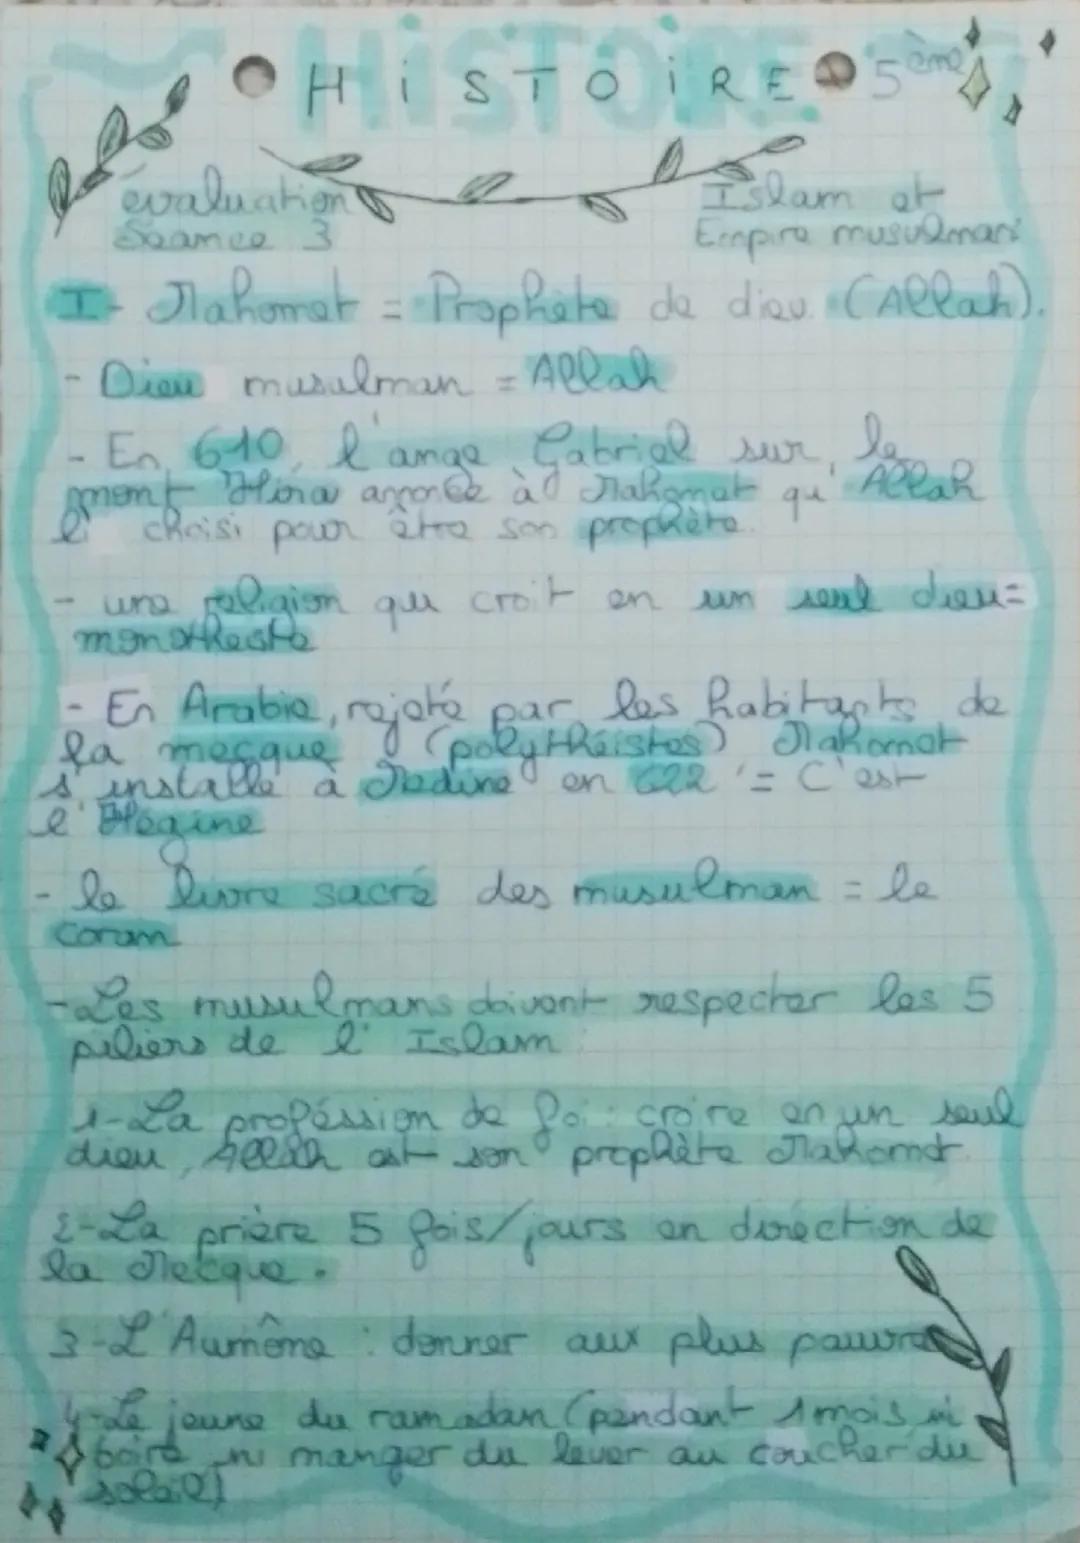 HiSTOiRE 5ème
évaluation
Séance 3
Islam et
Empire musulman
I- Mahomet = Prophète de dieu (Allah).
- Dieu musulman = Allah
- En 610, l'ange Gabriel sur le
mont Hira annonce à Mahomet qu' Allah
l' choisi pour être son prophète.
- une religion qui croit en un seul dieu =
monothéiste
- En Arabie, rejeté par les habitants de
la mecque (polythéistes) Mahomet
s'installe à Médine en 622 = C'est
l'Hégine
- le livre sacré des musulman = le
coran
- Les musulmans doivent respecter les 5
piliers de l' Islam :
1- La proféssion de foi : croire en un seul
dieu, Allah est son prophète Mahomet.
2- La prière 5 fois/jours en direction de
la Mecque.
3- L'Aumône : donner aux plus pauvre
4- Le jeune du ramadan (pendant 1 mois ni
boire ni manger du lever au coucher du
soleil)